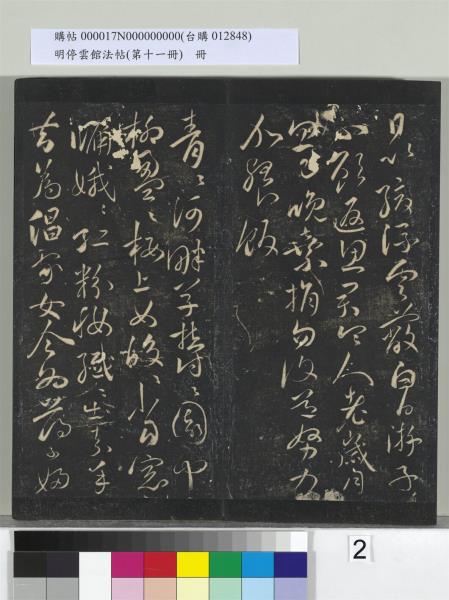 購帖 000017N000000000(台購 012848)
明停雲館法帖(第十一冊) 冊
日以緩浮雲蔽白日游子
不顧返思君令人老歲月
忽已晚棄捐勿復道努力
加餐飯
青〻河畔草鬱〻園中
柳盈〻樓上女皎〻當窗
牖娥〻紅粉妝纖〻出素手
昔為倡家女今為蕩子婦
2